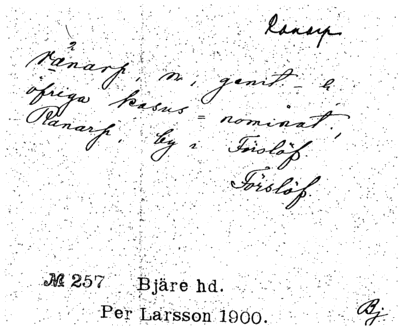 Ranarp
ránarp, n., genit -s,
öfriga kasus = nominat.,
Ranarp, by i Förslöf.
Förslöf.
№ 257 Bjäre hd.
Per Larsson 1900.
Bj